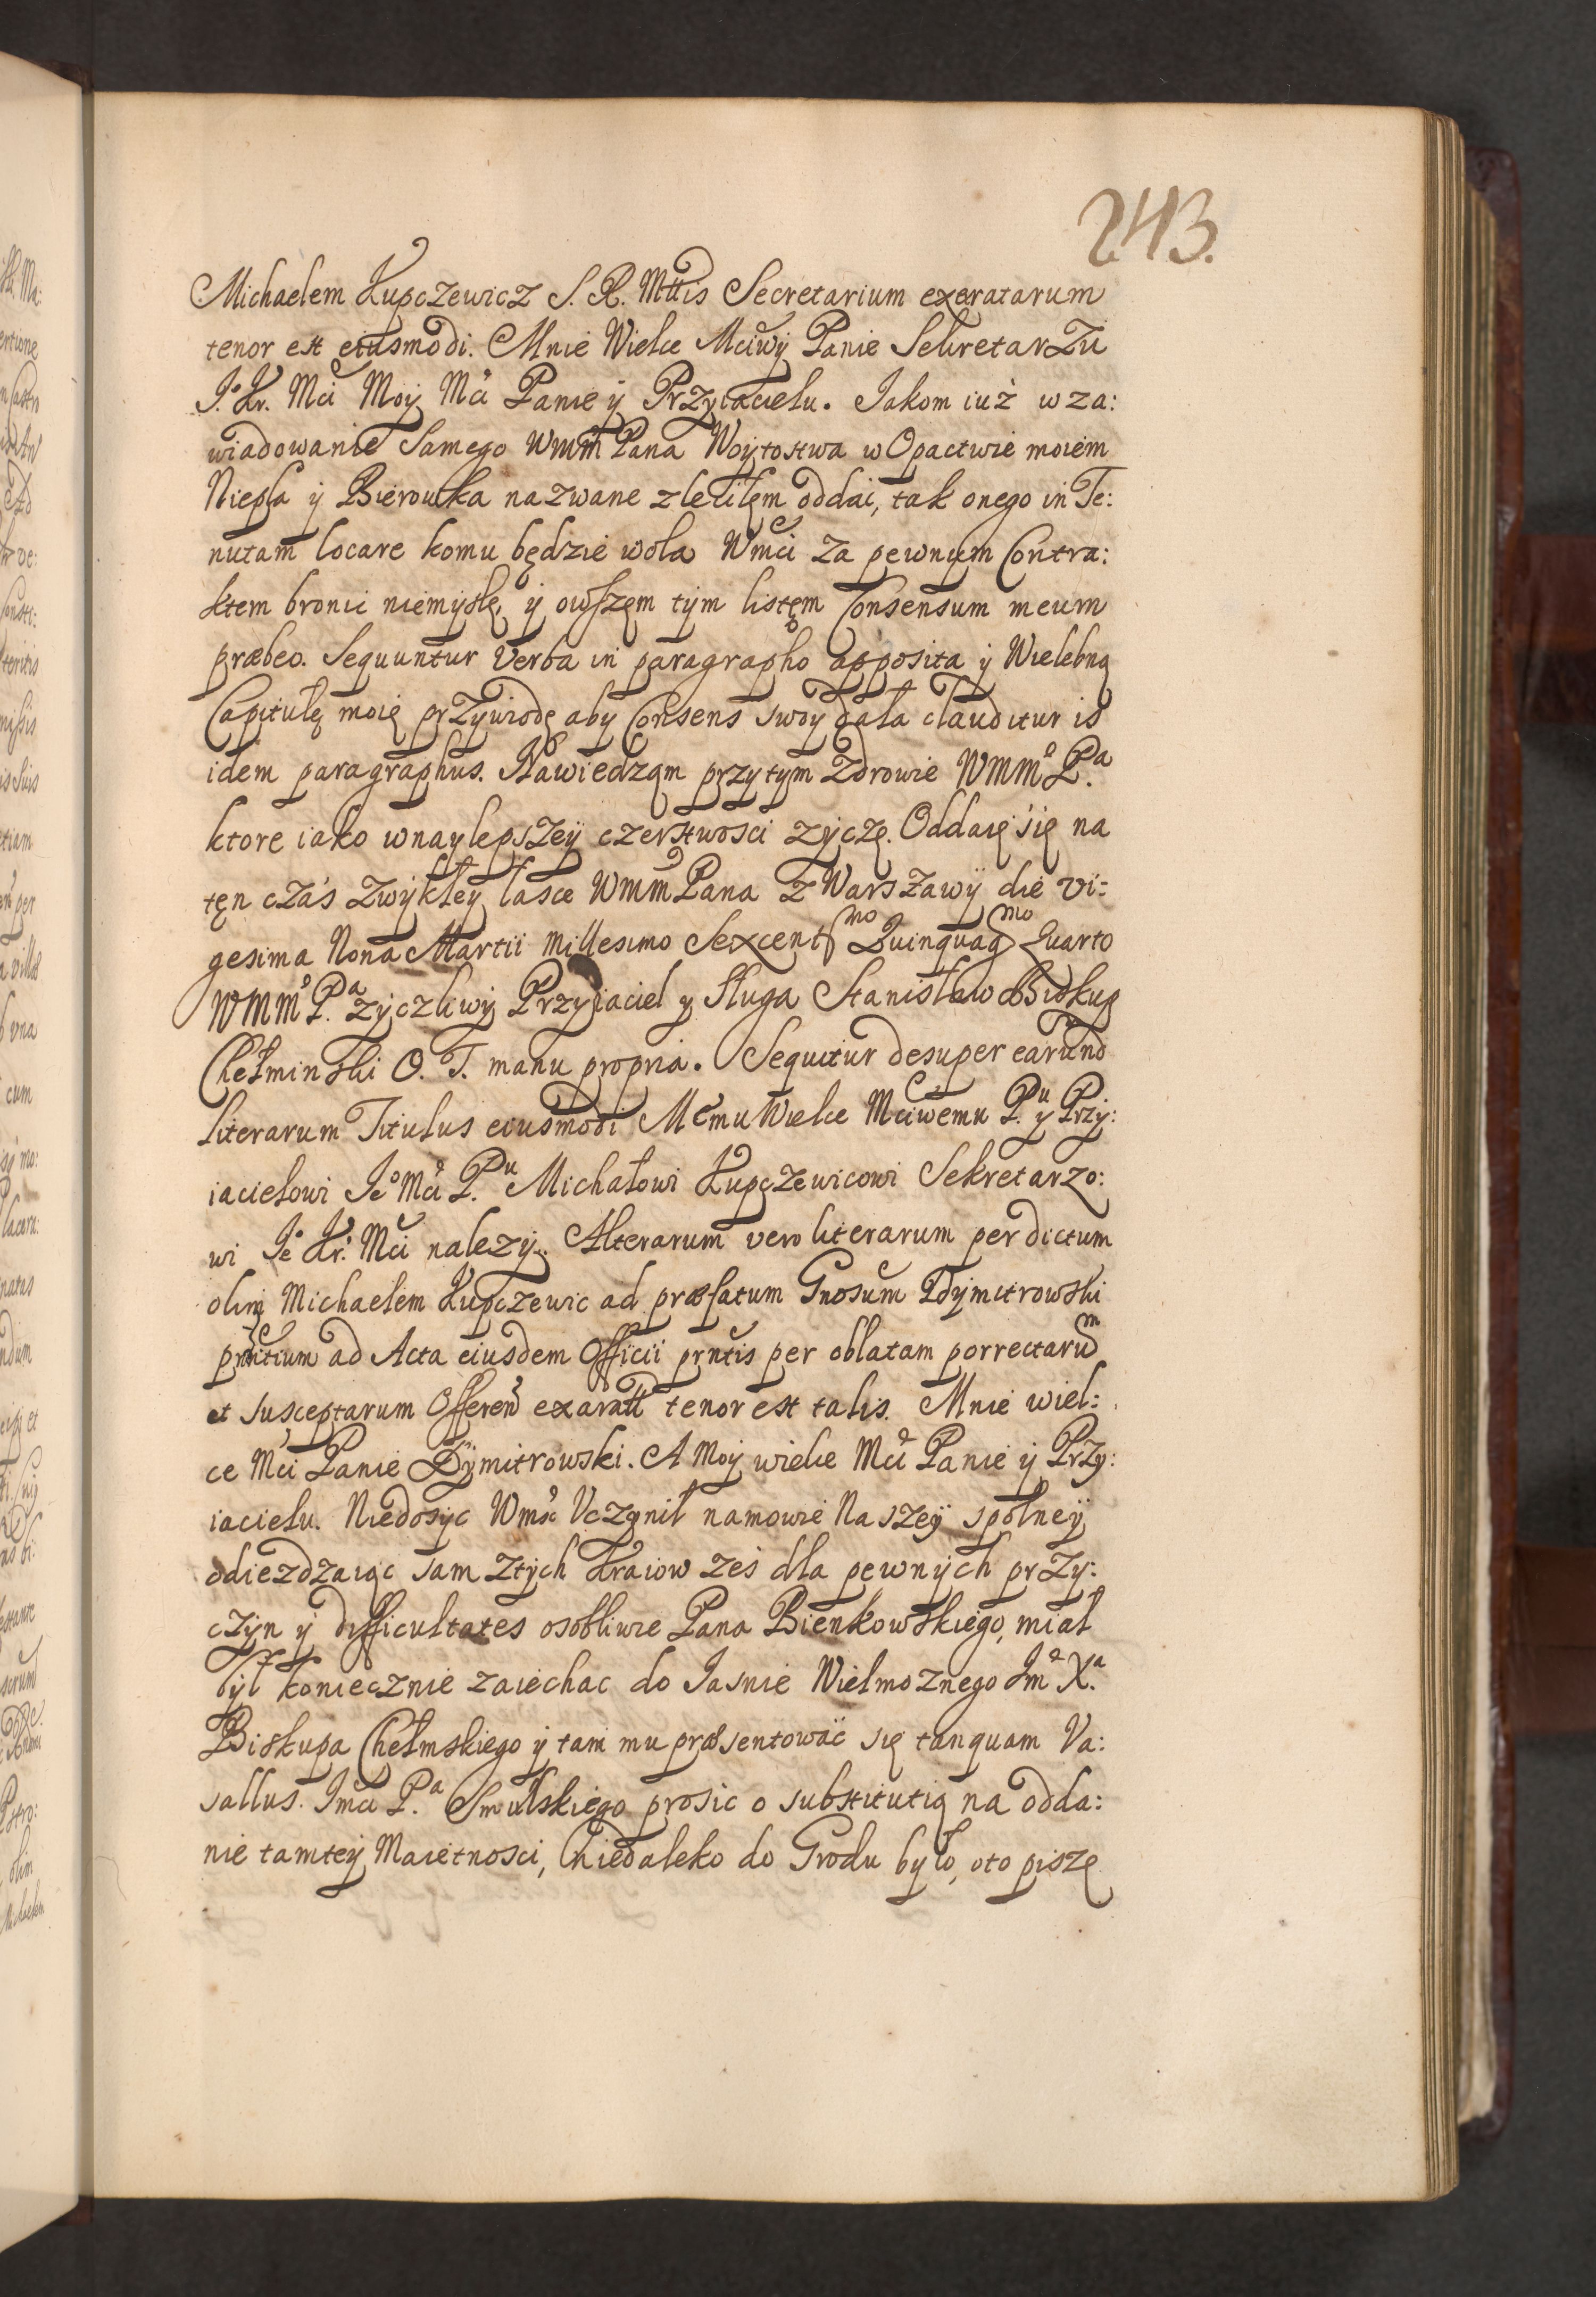 243.
Michaelem Kupczewicz S. R. Mttis Secretarium exaratarum
tenor est eiusmodi. Mnie Wielce Mciwÿ Panie Sekretarzu
Je. Kr. Mci Moÿ Mci Panie ÿ Przyiacielu. Jakom iuż w za:
wiadowanie Samego Wmm Pana Woytostwa w Opactwie moiem
Niepla ÿ Bierowka nazwane zleciłem oddać, tak onego in Te:
nutam locare komu będzie wola Wmci za pewnym Contra:
ktem bronić niemyślę, ÿ owszęm tym listęm Consensum meum
præbeo. Sequuntur Verba in paragrapho apposita ÿ Wielebną
Capitułę moię przywiodę aby Consens swoy dała clauditur is
idem paragraphus. Nawiedzam przytym Zdrowie WMMo Pa.
ktore iako wnaylepszeÿ czerstwosci zÿczę. Oddaię się na
tęn czás zwÿkłeÿ łasce Wmm Pana z Warszawÿ die vi:
gesima Nona Martii Millesimo Sexcentmo Quinquagmo Quarto
WMMo Pa. zÿczliwÿ Przyiaciel y sługa Stanisław Biskup
Chełminski O. T. manu propria. Sequitur desuper earund
literarum Titulus eiusmodi Memu Wielce Mciwemu Pu. y Przÿ:
iacielowi Jeo Mci Pu. Michałowi Kupczewicowi Sekretarzo:
wi Je Kr. Mci nalezÿ. Alterarum vero literarum per dictum
olim Michaelem Kupczewic ad præfatum Gnosum Dÿmitrowski
prntium ad Acta eiusdem Officii prntis per oblatam porrectarum
et susceptarum Offeren exaratt tenor est talis. Mnie wiel:
ce Mci Panie Dÿmitrowski. A Moÿ wielce Mci Panie ÿ Przÿ:
iacielu. Niedosÿc Wmsc Vczynił namowie Naszeÿ społneÿ
odiezdzaiąc sam ztÿch Kraiow ześ dla pewnÿch przÿ:
czÿn ÿ difficultates osobliwie Pana Bienkowskiego, miał
bÿł koniecznie zaiechac do Jasnie Wielmoznego Jmo Xa.
Biskupa Chełmskiego ÿ tam mu præsentowac się tanquam Va:
sallus. Jmci Pa. Smulskiego prosic o substitutią na odda:
nie tamteÿ Maietnosci, niedaleko do Grodu było, oto piszę